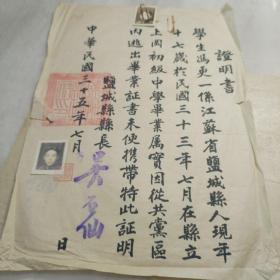 證明書
學生馮更一係江蘇省鹽城縣人現年
十七歲於民國三十三年七月在縣立
上岡初級中學畢業屬實因從共黨區
內逃出畢業証書未便携帶特此証明
鹽城縣縣長
中華民國三十五年七月 日